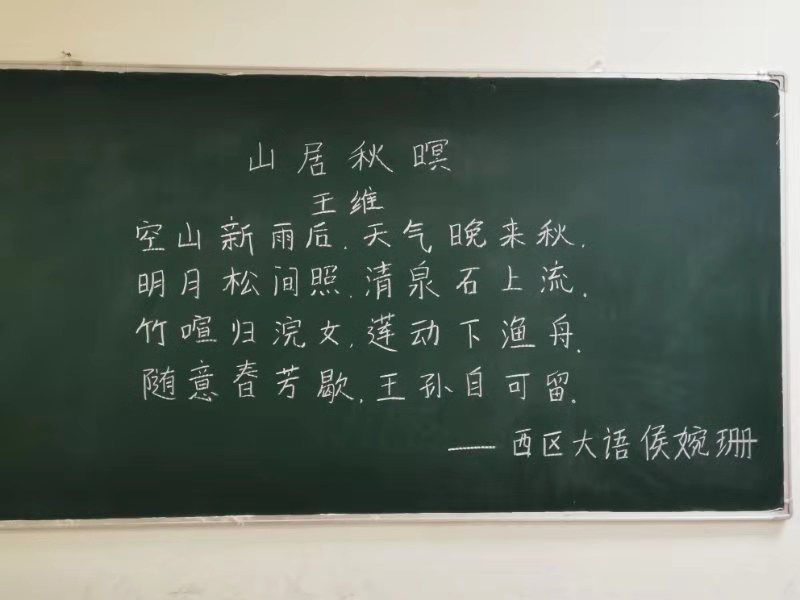 山居秋暝
王维
空山新雨后.天气晚来秋.
明月松间照.清泉石上流.
竹喧归浣女.莲动下渔舟.
随意春芳歇.王孙自可留.
——西区大语侯婉珊